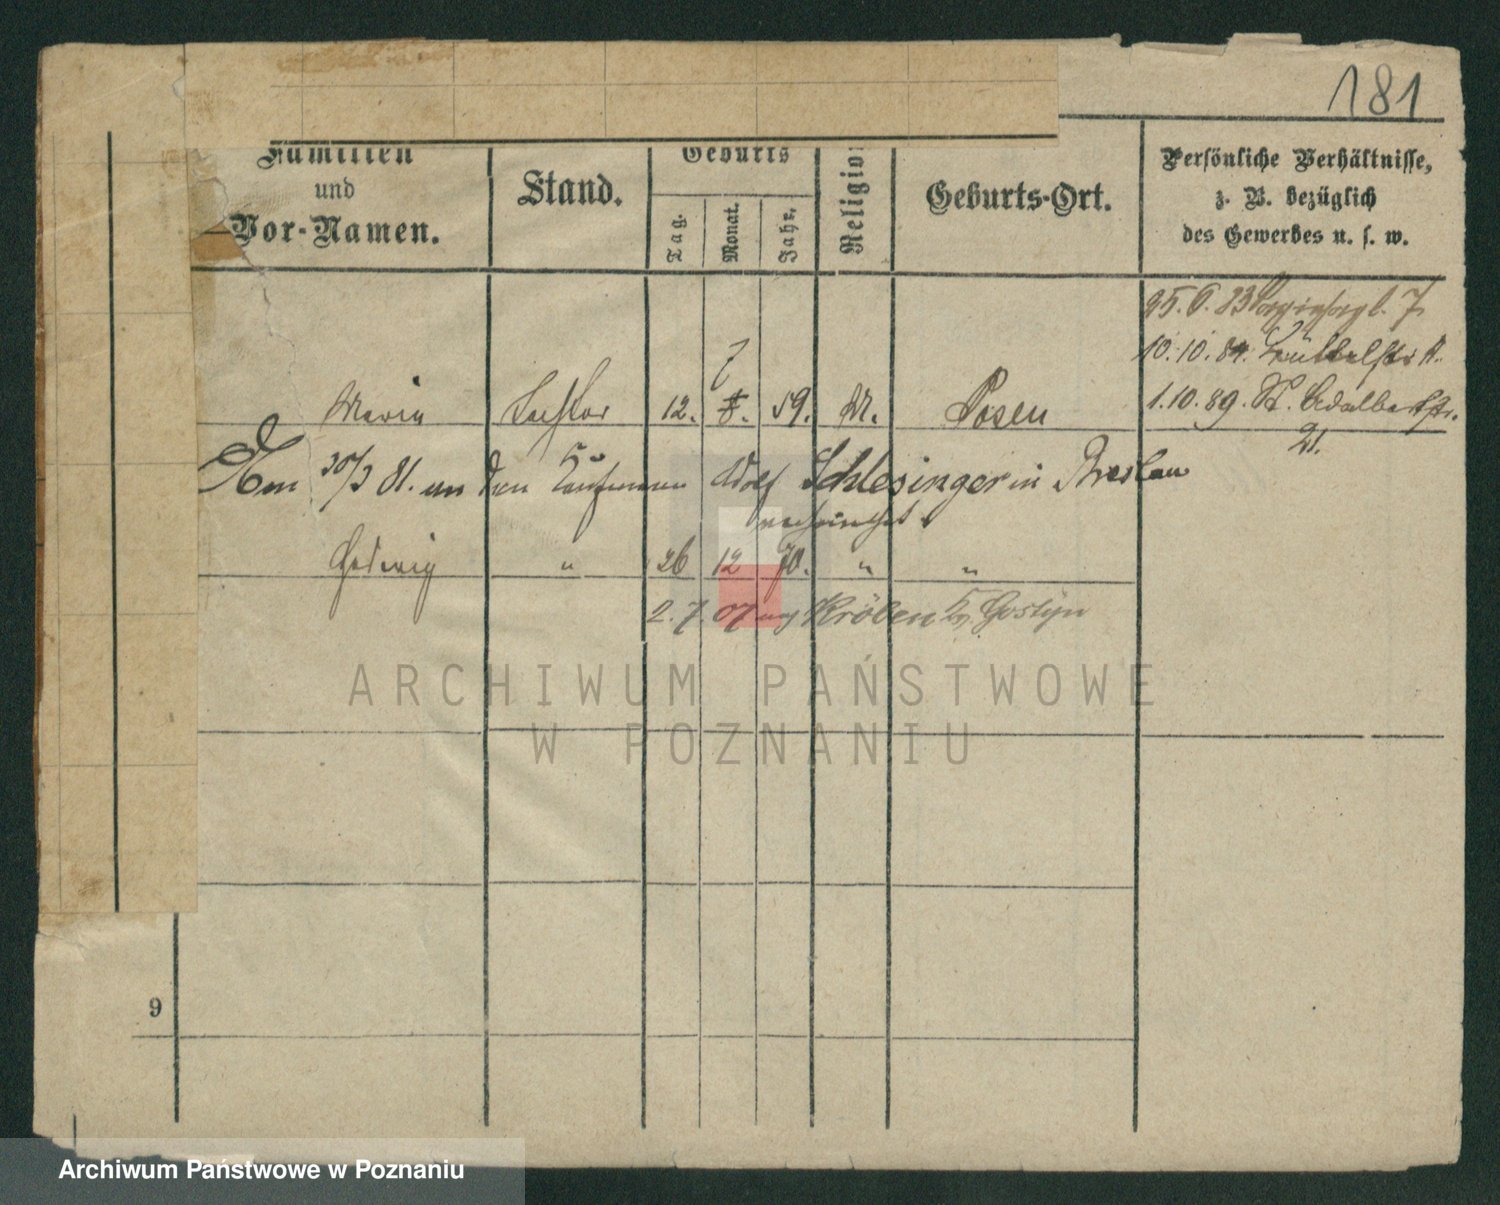 181
Familien
und
Vor-Namen.
Stand.
Geburts
Tag.
Monat.
Jahr.
Religion
Geburts-Ort.
Persönliche Verhältnisse,
z. B. bezüglich
des Gewerbes u. s. w.
25. 6. 83 7
10. 10. 84.
1. 10. 89. St. Adalbertstr.
21.
Maria Tochter 12. 7 59. M. Posen
Am 30/3 81. an den Kaufmann Adolf Schlesinger in Breslau
verheirathet.
Hedwig " 26 12 70. " "
2. 7. 07 Kröben Gostyn
9
ARCHIWUM PAŃSTWOWE
W POZNANIU
Archiwum Państwowe w Poznaniu